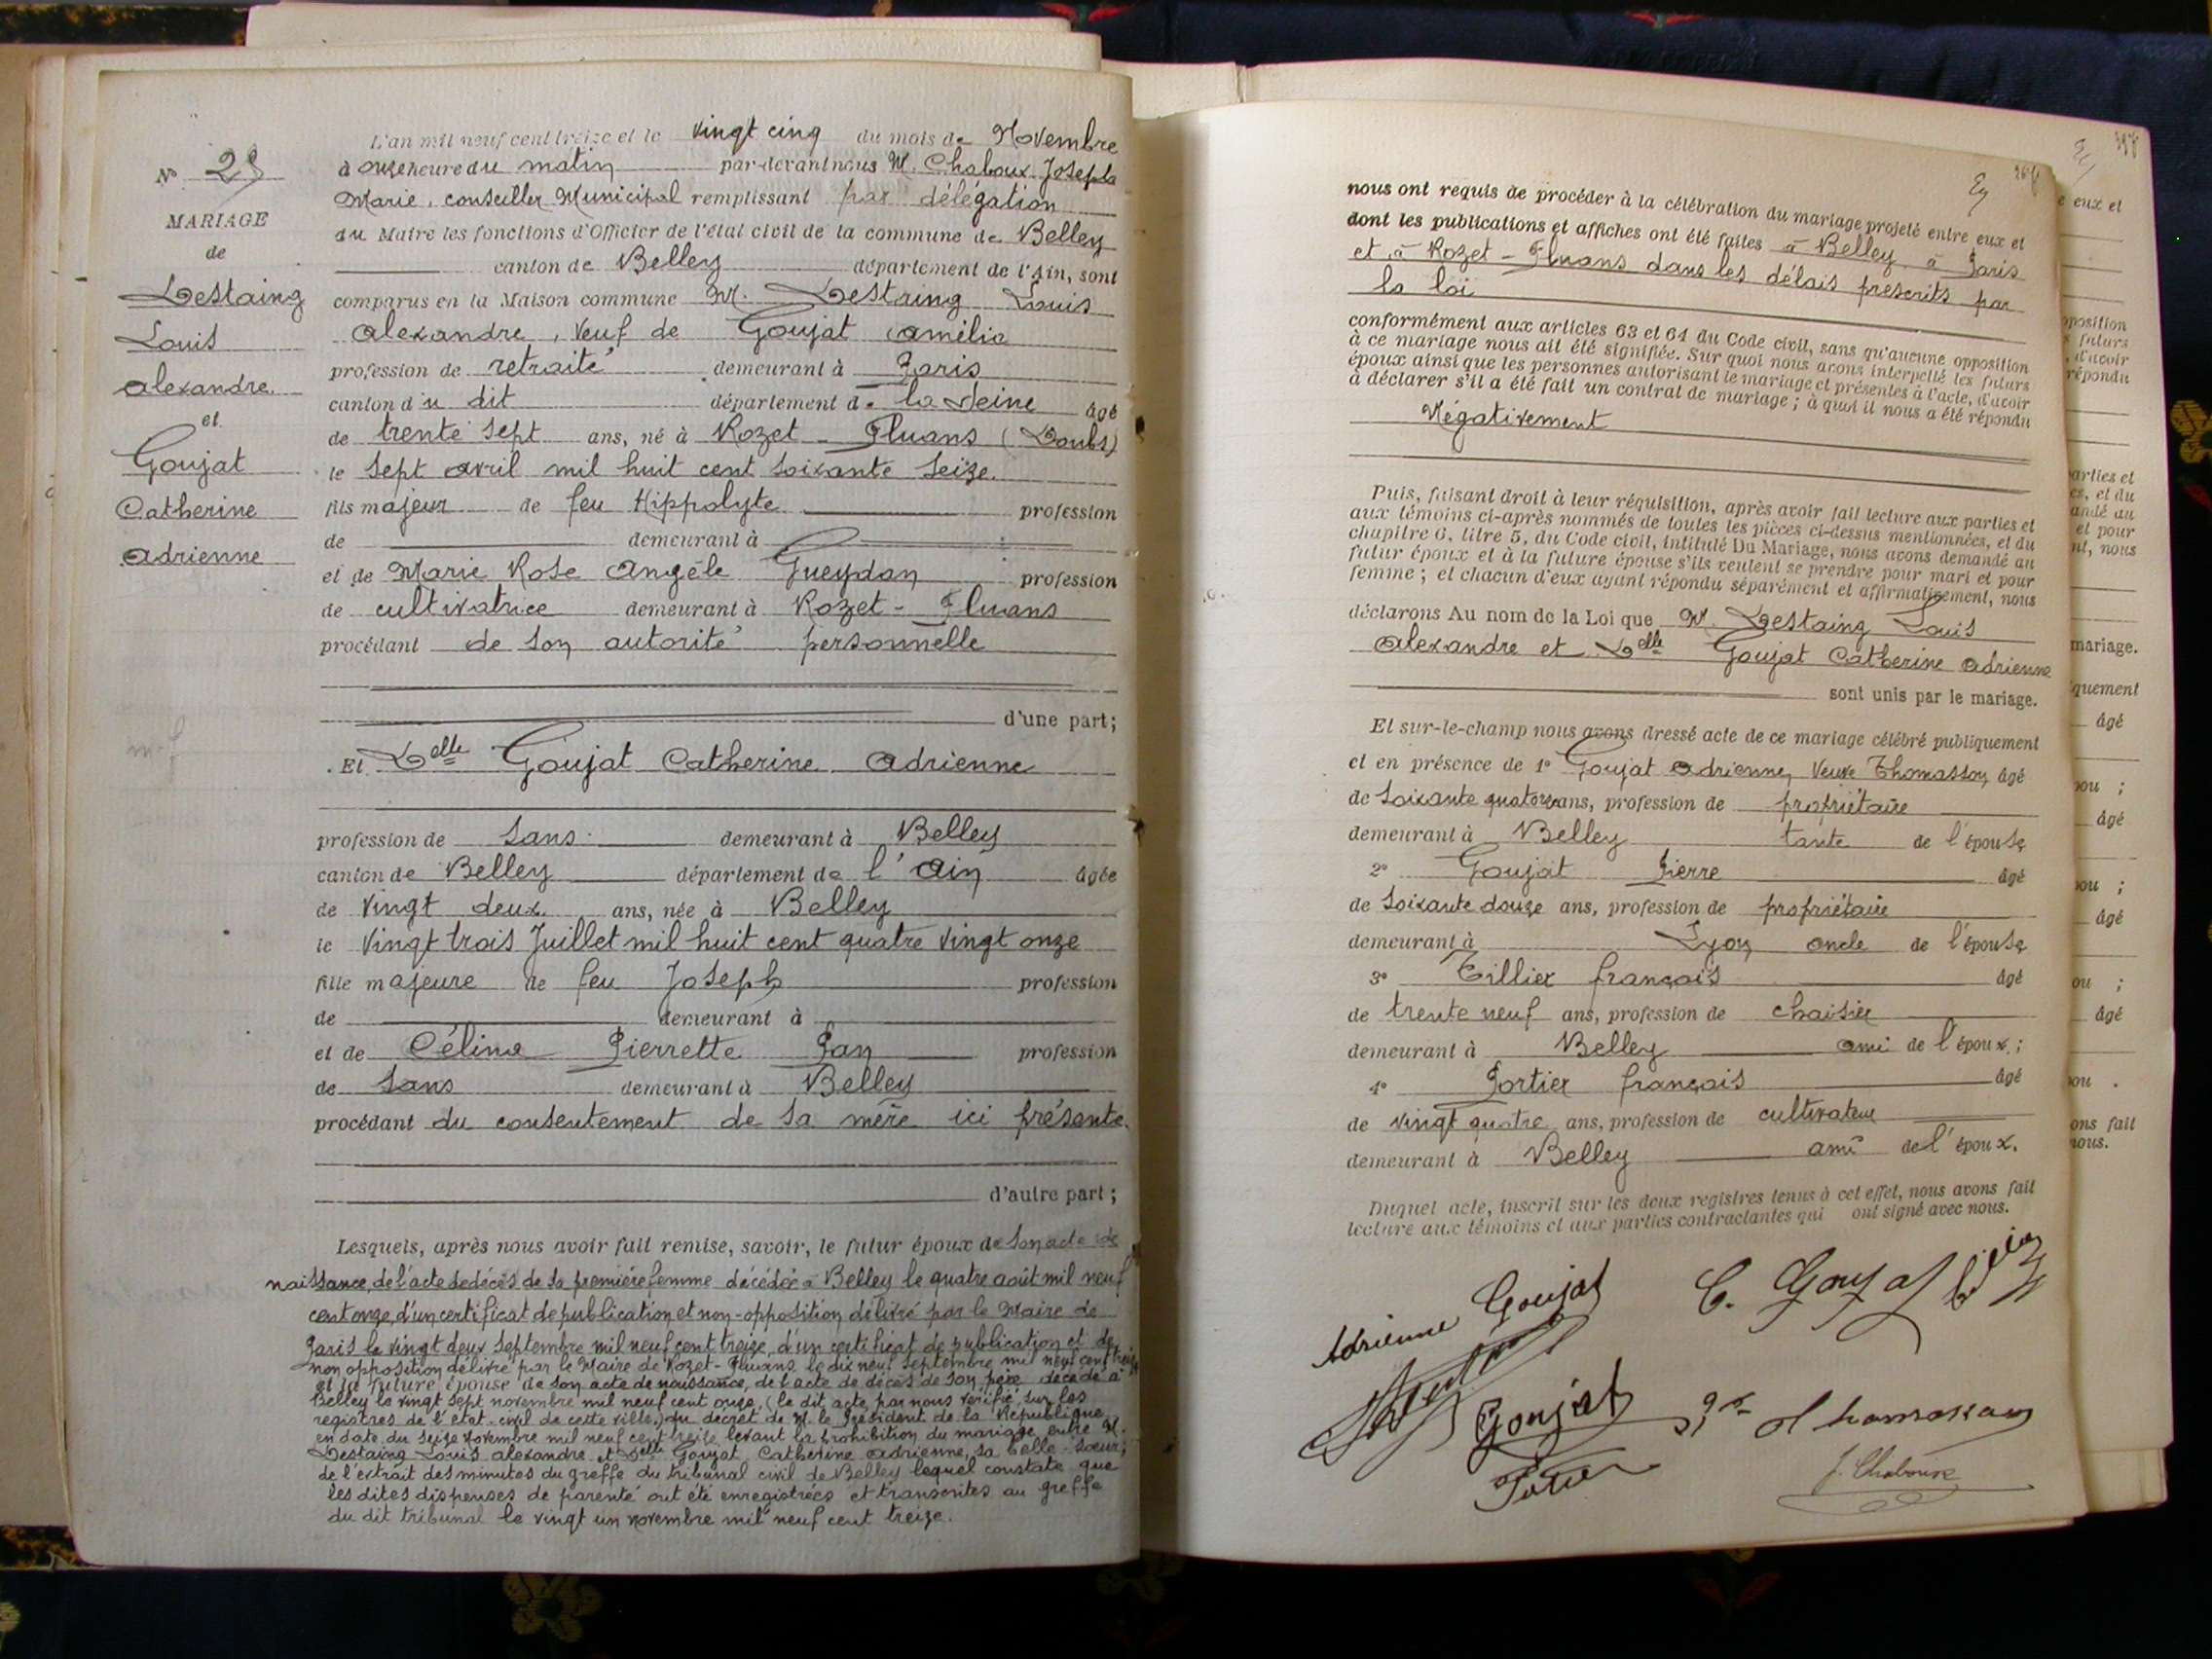 L'an mil neuf cent treize et le vingt cinq du mois de Novembre
à onze heure du matin par-devant nous M. Chaboux Joseph
Marie, conseiller Municipal remplissant par délégation
du Maire les fonctions d'Officier de l'état civil de la commune de Belley
canton de Belley département de l'Ain, sont
comparus en la Maison commune M. Destaing Louis
Alexandre, veuf de Goujat Amélie
profession de retraité demeurant à Paris
canton du dit département de la Seine âgé
de trente sept ans, né à Rozet-Fluans (Doubs)
le sept avril mil huit cent soixante seize.
fils majeur de feu Hippolyte profession
de demeurant à
et de Marie Rose Angèle Gueydan profession
de cultivatrice demeurant à Rozet-Fluans
procédant de son autorité personnelle
d'une part;
Et Delle Goujat Catherine Adrienne
profession de Sans demeurant à Belley
canton de Belley département de l'Ain âgée
de vingt deux ans, née à Belley
le vingt trois Juillet mil huit cent quatre vingt onze
fille majeure de feu Joseph profession
de demeurant à
et de Célina Pierrette Pan profession
de Sans demeurant à Belley
procédant du consentement de sa mère ici présente.
d'autre part;
Lesquels, après nous avoir fait remise, savoir, le futur époux de son acte de
naissance, de l'acte de décès de sa première femme décédée à Belley le quatre août mil neuf
cent onze, d'un certificat de publication et non-opposition délivré par le Maire de
Paris le vingt deux Septembre mil neuf cent treize, d'un certificat de publication et de
non opposition délivré par le Maire de Rozet-Fluans le dix neuf Septembre mil neuf cent treize
et la future épouse de son acte de naissance, de l'acte de décès de son père décédé à
Belley le vingt sept novembre mil neuf cent onze, (le dit acte par nous vérifié sur les
registres de l'état-civil de cette ville,) du décret de M. le Président de la République
en date du seize novembre mil neuf cent treize levant la prohibition du mariage entre M.
Destaing Louis Alexandre et Delle Goujat Catherine Adrienne, sa belle-sœur;
de l'extrait des minutes du greffe du tribunal civil de Belley lequel constate que
les dites dispenses de parenté ont été enregistrées et transcrites au greffe
du dit tribunal le vingt un novembre mil neuf cent treize.
No 29
MARIAGE
de
Destaing
Louis
Alexandre.
et
Goujat
Catherine
Adrienne
nous ont requis de procéder à la célébration du mariage projeté entre eux et
dont les publications et affiches ont été faites à Belley, à Paris
et à Rozet-Fluans dans les délais prescrits par
la loi
conformément aux articles 63 et 64 du Code civil, sans qu'aucune opposition
à ce mariage nous ait été signifiée. Sur quoi nous avons interpellé les futurs
époux ainsi que les personnes autorisant le mariage et présentes à l'acte, d'avoir
à déclarer s'il a été fait un contrat de mariage; à quoi il nous a été répondu
Négativement
Puis, faisant droit à leur réquisition, après avoir fait lecture aux parties et
aux témoins ci-après nommés de toutes les pièces ci-dessus mentionnées, et du
chapitre 6, titre 5, du Code civil, intitulé Du Mariage, nous avons demandé au
futur époux et à la future épouse s'ils veulent se prendre pour mari et pour
femme; et chacun d'eux ayant répondu séparément et affirmativement, nous
déclarons Au nom de la Loi que M. Destaing Louis
Alexandre et Delle Goujat Catherine Adrienne
sont unis par le mariage.
Et sur-le-champ nous avons dressé acte de ce mariage célébré publiquement
et en présence de 1° Goujat Adrienne, veuve Thomasson, âgé
de soixante quatorze ans, profession de propriétaire
demeurant à Belley tante de l'épouse
2° Goujat Pierre âgé
de soixante douze ans, profession de propriétaire
demeurant à Lyon oncle de l'épouse
3° Tillier françois âgé
de trente neuf ans, profession de chaisier
demeurant à Belley ami de l'époux;
4° Portier françois âgé
de vingt quatre ans, profession de cultivateur
demeurant à Belley ami de l'époux.
Duquel acte, inscrit sur les deux registres tenus à cet effet, nous avons fait
lecture aux témoins et aux parties contractantes qui ont signé avec nous.
Adrienne Goujat C. Goujat
Goujat
J. Chaboux
e eux et
opposition
futurs
d'avoir
répondu
parties et
es, et du
andé au
et pour
nt, nous
mariage.
quement
âgé
ou ;
âgé
ou ;
âgé
ou ;
âgé
ou .
ons fait
nous.